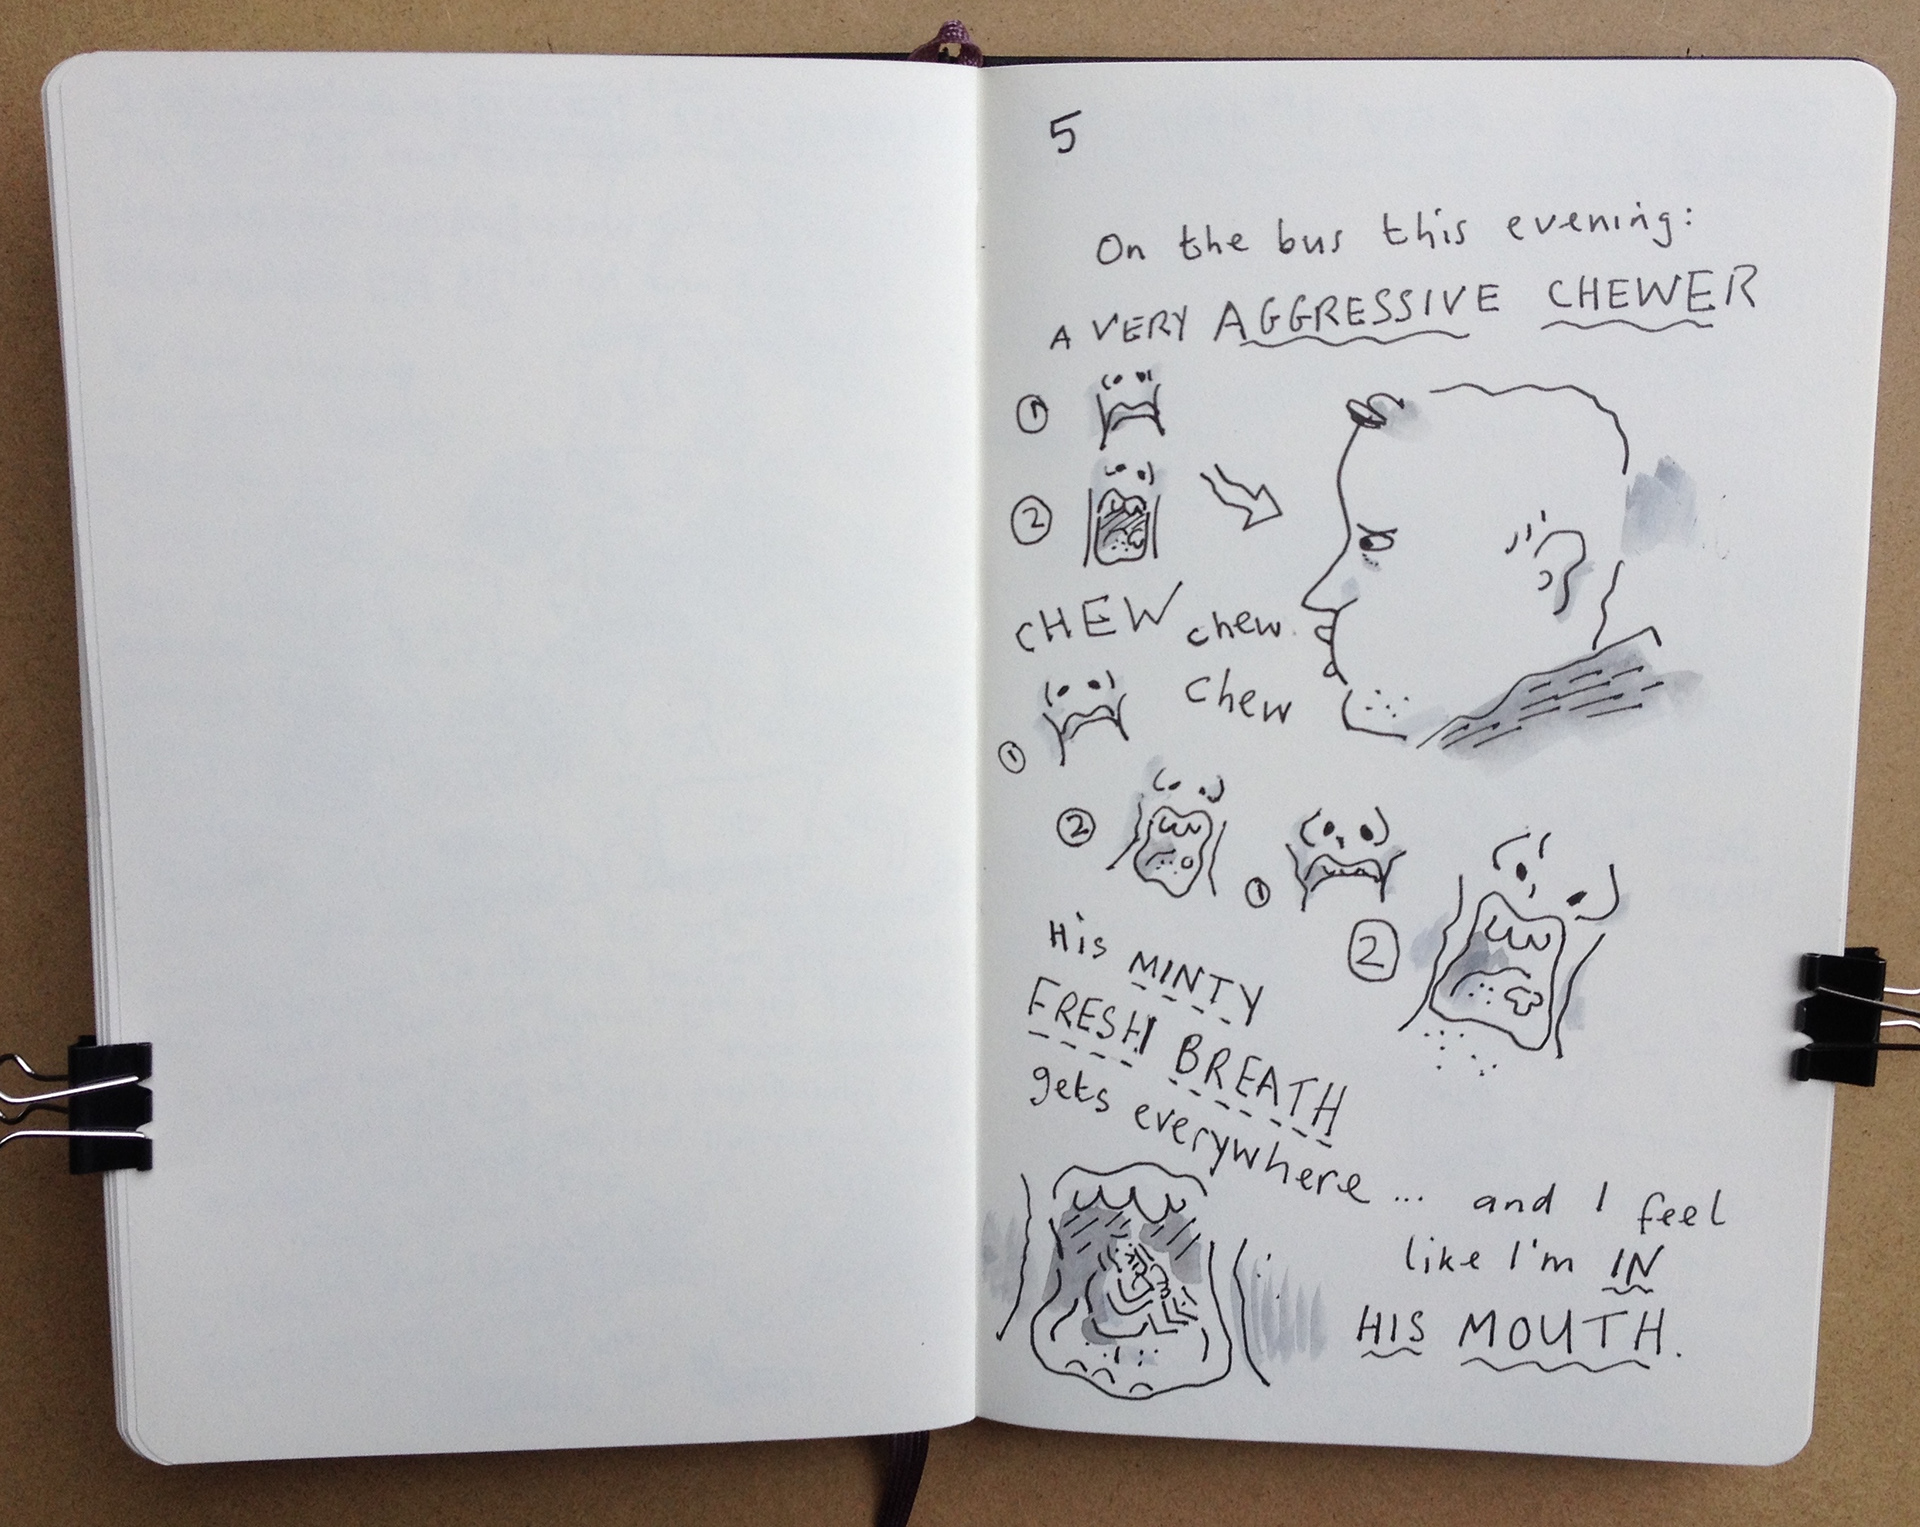 5
On the bus this evening:
A VERY AGGRESSIVE CHEWER
1
2
CHEW chew
chew
1
2
1
2
His MINTY
FRESH BREATH
gets everywhere... and I feel
like I'm IN
HIS MOUTH.